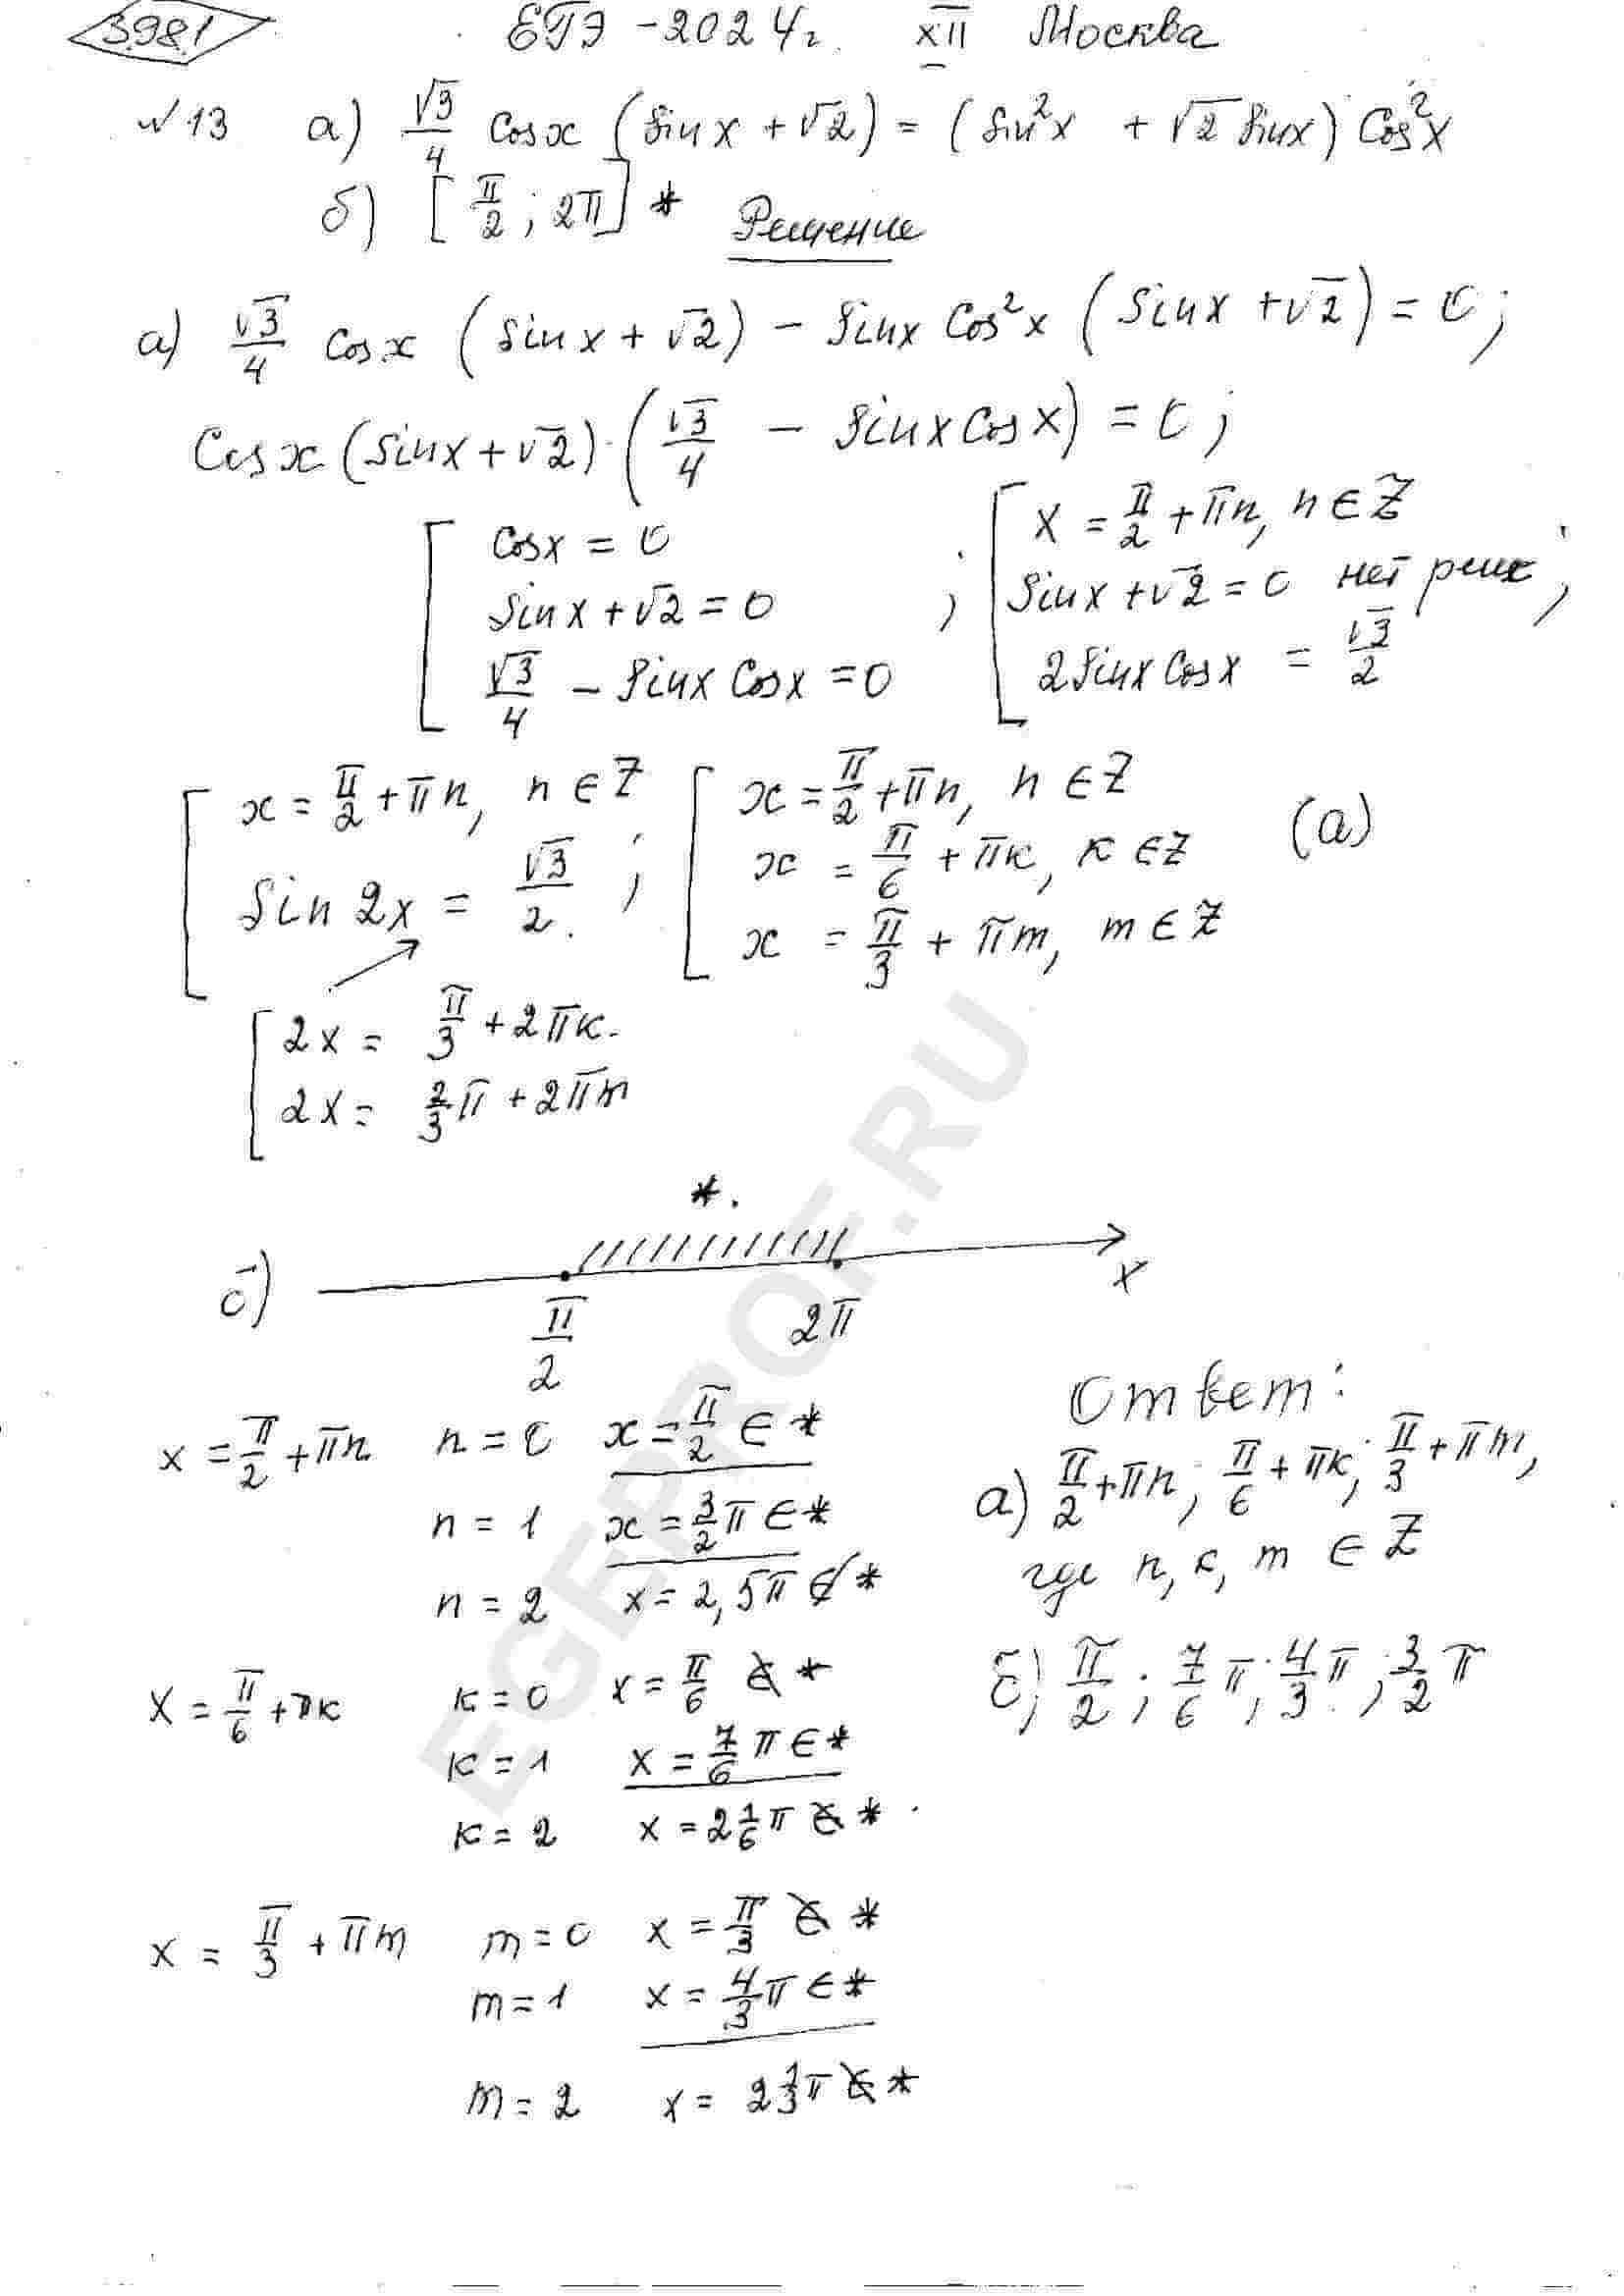 3981 ЕГЭ - 2024г. XII Москва
№13 а) √3/4 Cosx (Sinx + √2) = (Sin²x + √2 Sinx) Cos²x
б) [π/2; 2π] *
Решение
а) √3/4 Cosx (Sinx + √2) - Sinx Cos²x (Sinx + √2) = 0;
Cosx (Sinx + √2) · (√3/4 - Sinx Cosx) = 0;
[ Cosx = 0 ; [ x = π/2 + πn, n ∈ Z ;
Sinx + √2 = 0 Sinx + √2 = 0 нет реш
√3/4 - Sinx Cosx = 0 2Sinx Cosx = √3/2
[ x = π/2 + πn, n ∈ Z ; [ x = π/2 + πn, n ∈ Z (а)
Sin 2x = √3/2. x = π/6 + πк, к ∈ Z
x = π/3 + πm, m ∈ Z
[ 2x = π/3 + 2πк.
2x = 2/3 π + 2πm
*.
б) π/2 2π x
x = π/2 + πn n = 0 x = π/2 ∈ *
n = 1 x = 3/2 π ∈ *
n = 2 x = 2,5π ∉ *
x = π/6 + πк к = 0 x = π/6 ∉ *
к = 1 x = 7/6 π ∈ *
к = 2 x = 2 1/6 π ∉ *
x = π/3 + πm m = 0 x = π/3 ∉ *
m = 1 x = 4/3 π ∈ *
m = 2 x = 2 1/3 π ∉ *
Ответ:
а) π/2 + πn; π/6 + πк; π/3 + πm,
где n, к, m ∈ Z
б) π/2; 7/6 π; 4/3 π; 3/2 π
EGEPROF.RU